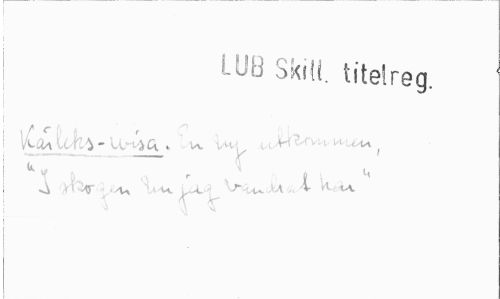 LUB Skill. titelreg.
Kärleks-wisa. En ny utkommen,
"I skogen hur jag vandrat har"